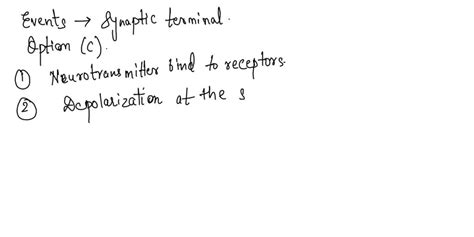 Events → Synaptic terminal.
Option (C).
① Neurotransmitter bind to receptors.
② Depolarization at the s